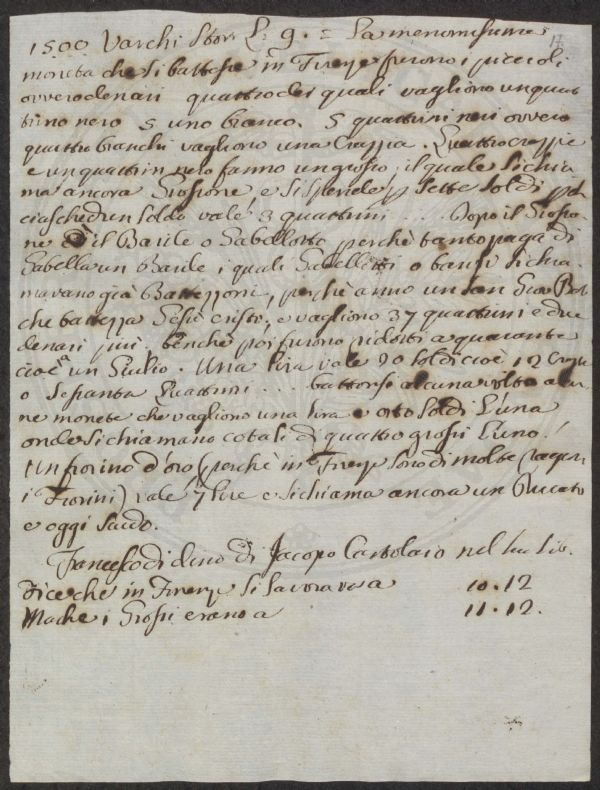 1500 Varchi Stor. L. 9. = La menomissima
moneta che si battesse in Firenze furono i piccioli
ovvero denari quattro dei quali vagliono un quat
trino nero 5 uno bianco. 5 quattrini neri ovvero
quattro bianchi vagliono una Crazia. Quattro crazie
e un quattrin nero fanno un grosso, il quale si chia
ma ancora Grossone e si spende p sette soldi, 
ciaschedun soldo vale 3 quattrini ... Dopo il Grosso
ne è il Barile o Gabellotto perchè tanto paga di
Gabella un Barile i quali Gabellotti o barili si chia
mavano già Battezzoni, perchè anno un San Gio: Bat
che battezza Gesù cristo, e vagliono 37 quattrini e due
denari piu. benchè poi furono ridotti a quaranta
cioè a un Giulio. Una lira vale 20 soldi cioè 12 Crazie
o Sessanta Quattrini ... battonsi alcuna volta alcu
ne monete che vagliono una lira e otto soldi L'una
onde si chiamano cotali di quattro grossi l'uno!
Un fiorino d'oro (perchè in Firenze sono di molte ragion
i Fiorini) vale 7 lire e si chiama ancora un Ducato
e oggi Scudo.
Francesco di dino di Jacopo Cartolaio nel suo Lib.
dice che in Firenze si lavorava a 10.12
Ma che i Grossi erano a 11.12.